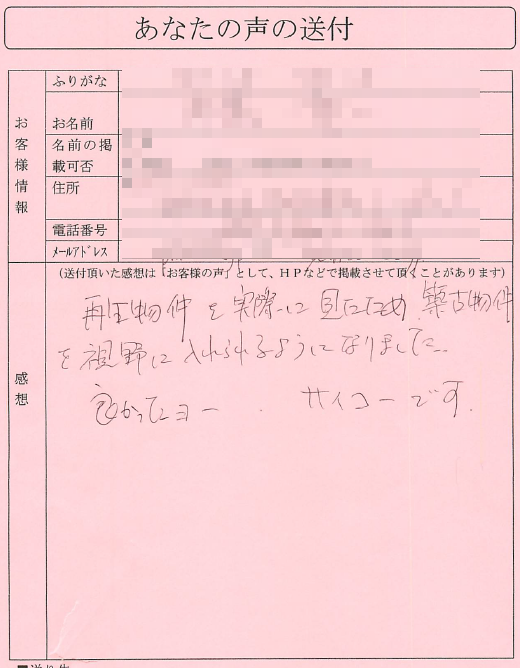 あなたの声の送付
お客様情報
ふりがな
お名前
名前の掲
載可否
住所
電話番号
メールアドレス
感想
(送付頂いた感想は「お客様の声」として、HPなどで掲載させて頂くことがあります)
再生物件を実際に見たため築古物件
を視野に入れられるようになりました。
良かったヨー. サイコーです.